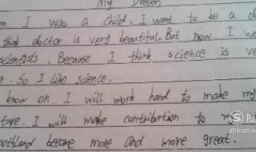 My dream
I was a child. I want to be a d
think doctor is very beautiful. But now I w
scientists. Because I think science is ve
So I like science.
know oh. I will work hard to make my
ture. I will make contribution to
motherland become more and more great.